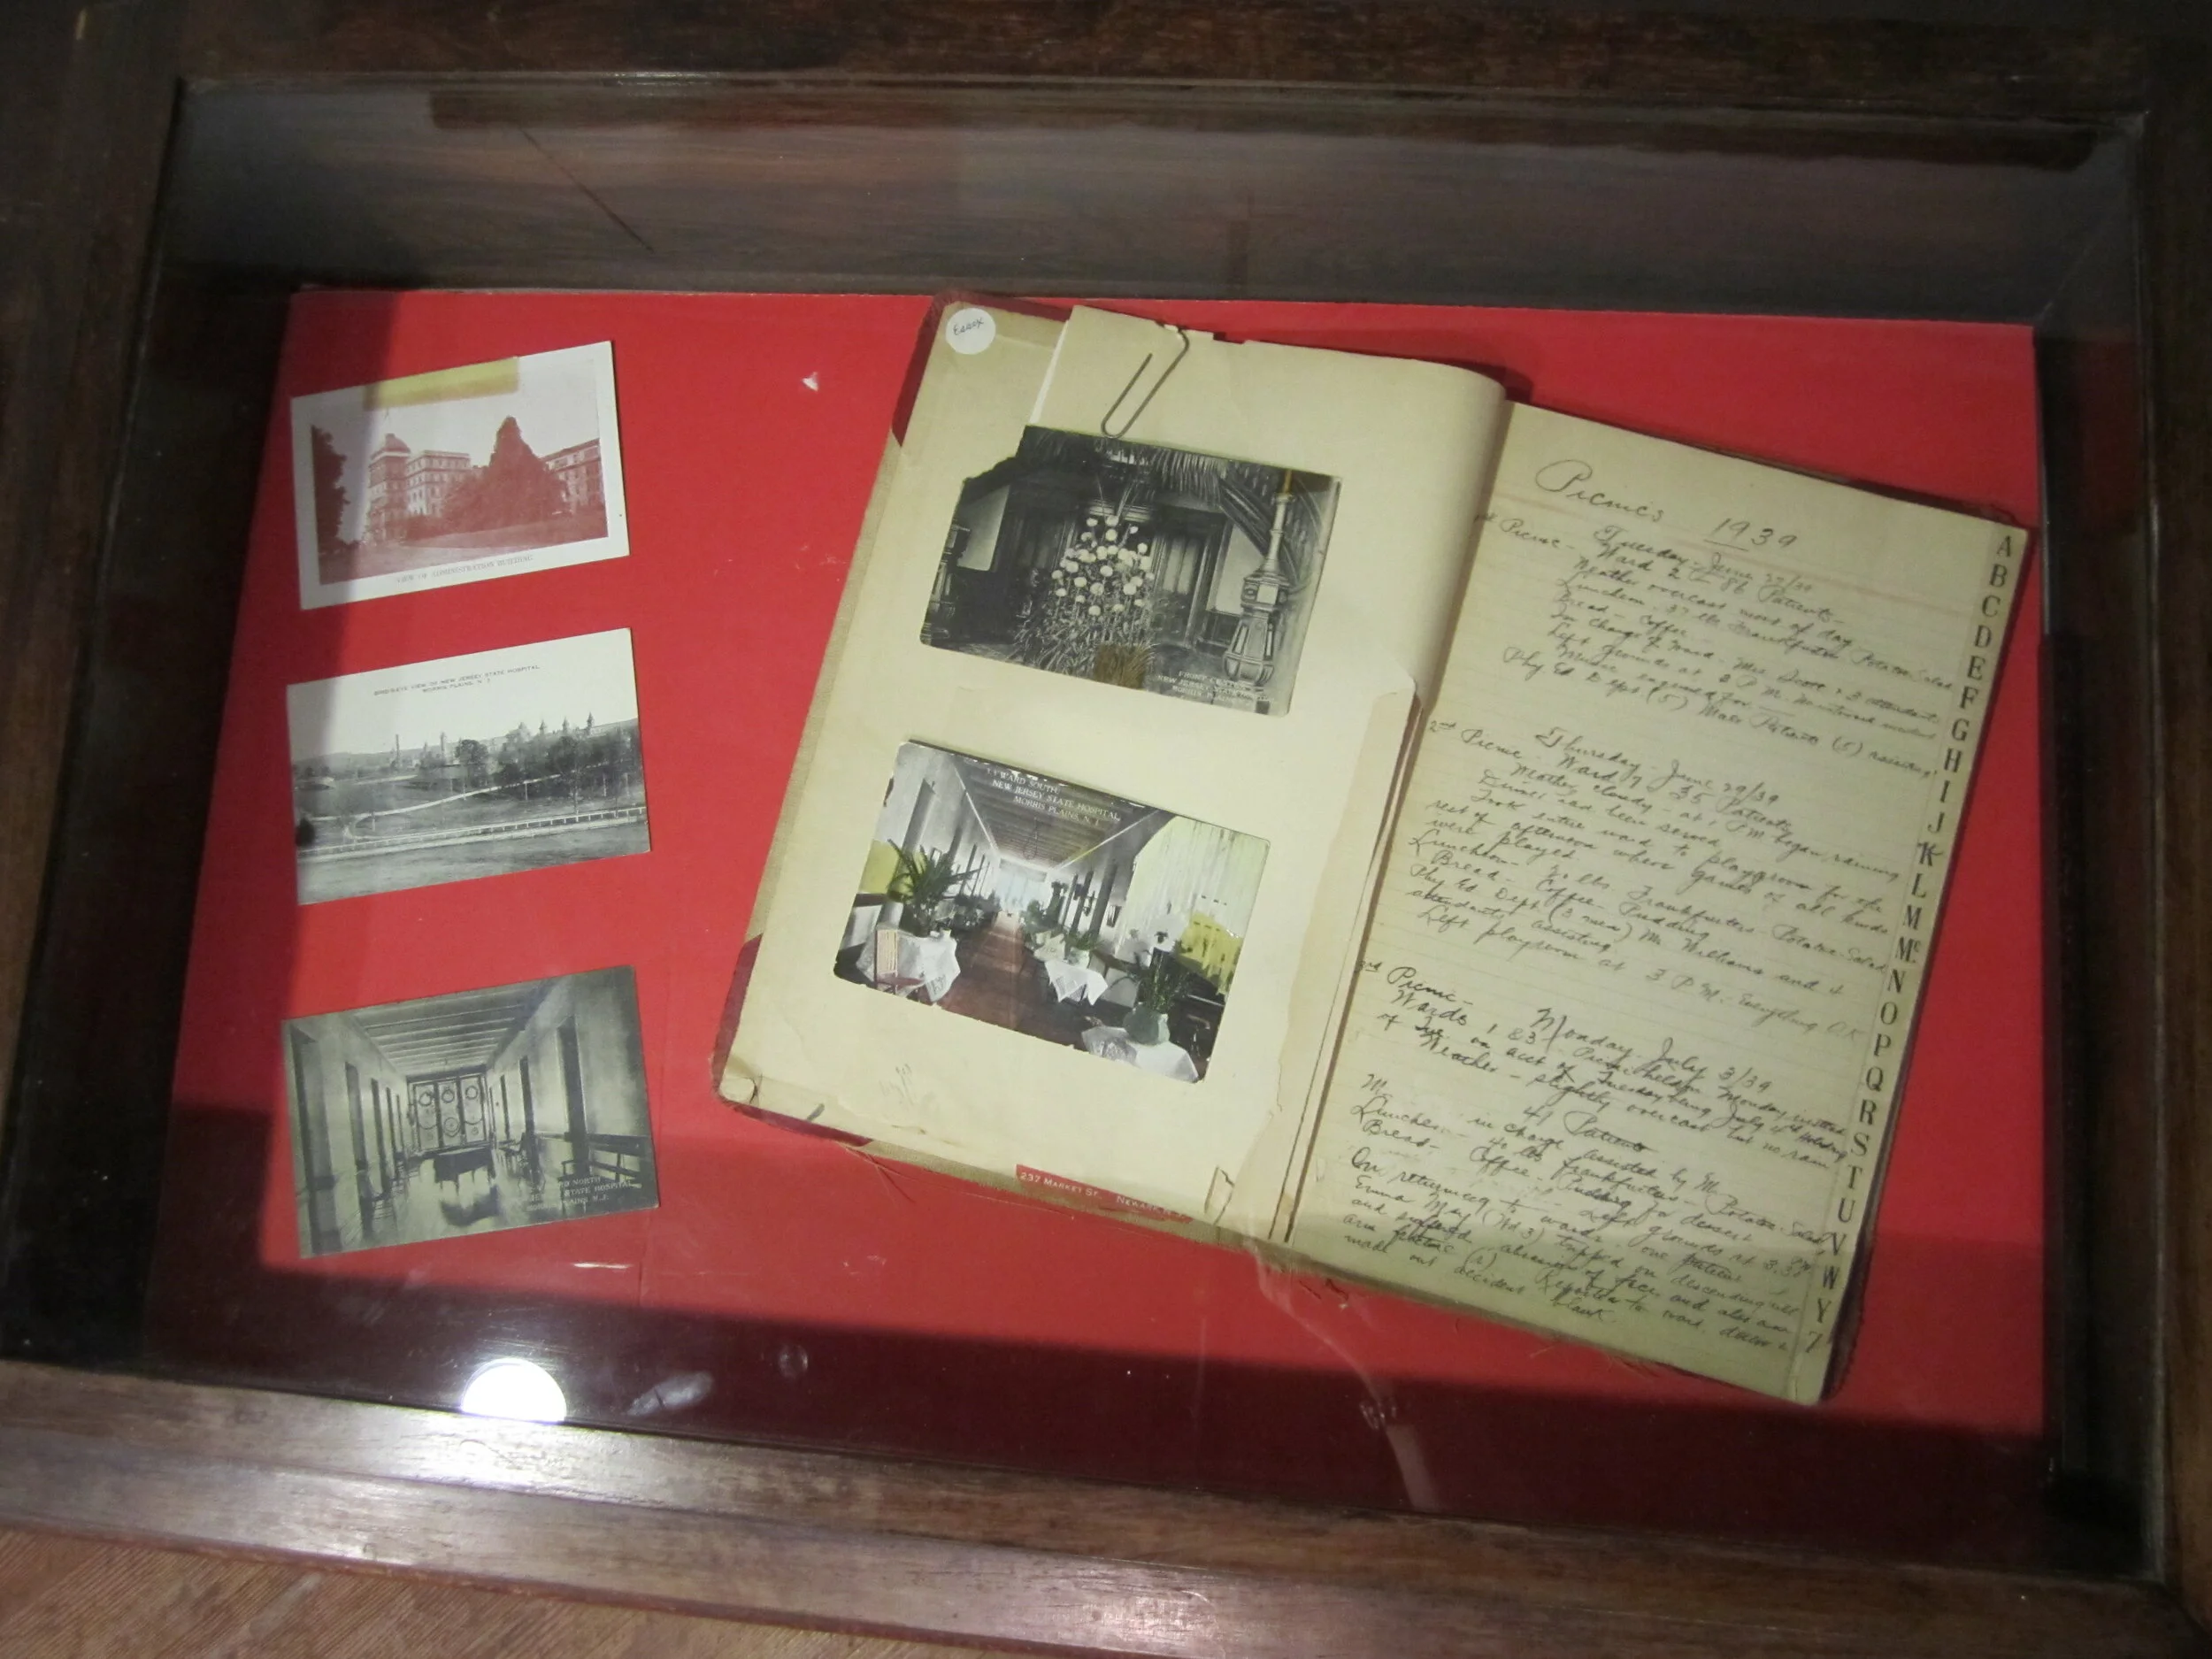 VIEW OF ADMINISTRATION BUILDING.
BIRDSEYE VIEW OF NEW JERSEY STATE HOSPITAL
MORRIS PLAINS, N. J.
NORTH
STATE HOSPITAL
PLAINS, N.J.
Essex
NEW JERSEY STATE HOSPITAL
MORRIS PLAINS
WARD SOUTH
NEW JERSEY STATE HOSPITAL
MORRIS PLAINS, N. J.
237 MARKET ST. NEWARK, N.
Picnics 1939
Picnic - Tuesday - June 27/39
Ward 2 - 86 Patients -
Weather overcast most of day
Luncheon - 37 lbs Frankfurters Potatoe Salad
Bread - Coffee -
In charge of Ward - Mrs. + 3 attendants
Left grounds at 3 P.M.
Music enjoyed for
Phy Ed Dept (5) Male Patients (5) assisting
2nd Picnic - Thursday - June 29/39
Ward 7 35 Patients
Mostly cloudy - at 1 PM began raining
Dinner had been served
Took entire ward to playgroom for the
rest of afternoon where games of all kinds
were played
Luncheon - 20 lbs. Frankfurters - Potatoe Salad
Bread - Coffee - Pudding
Phy Ed Dept (3 men) Mr. Williams and 4
attendants assisting
Left playroom at 3 P.M. Everything O.K
3rd Picnic - Monday. July 3/39
Wards 1 & 3 Picnic held on Monday instead
of on acct of Tuesday being July 4th Holiday
Weather - slightly overcast but no rain
41 Patients
M in charge assisted by M
Luncheon - 40 lbs Frankfurters - Potatoe Salad
Bread - Coffee - Pudding for dessert
Left grounds at 3:30 PM
On returning to wards one patient
Emma May (Wd 3) tripped on descending
and suffered abrasion of face and also
arm Reported to ward.
made out accident blank
A
B
C
D
E
F
G
H
I
J
K
L
M
Mc
N
O
P
Q
R
S
T
U
V
W
Y